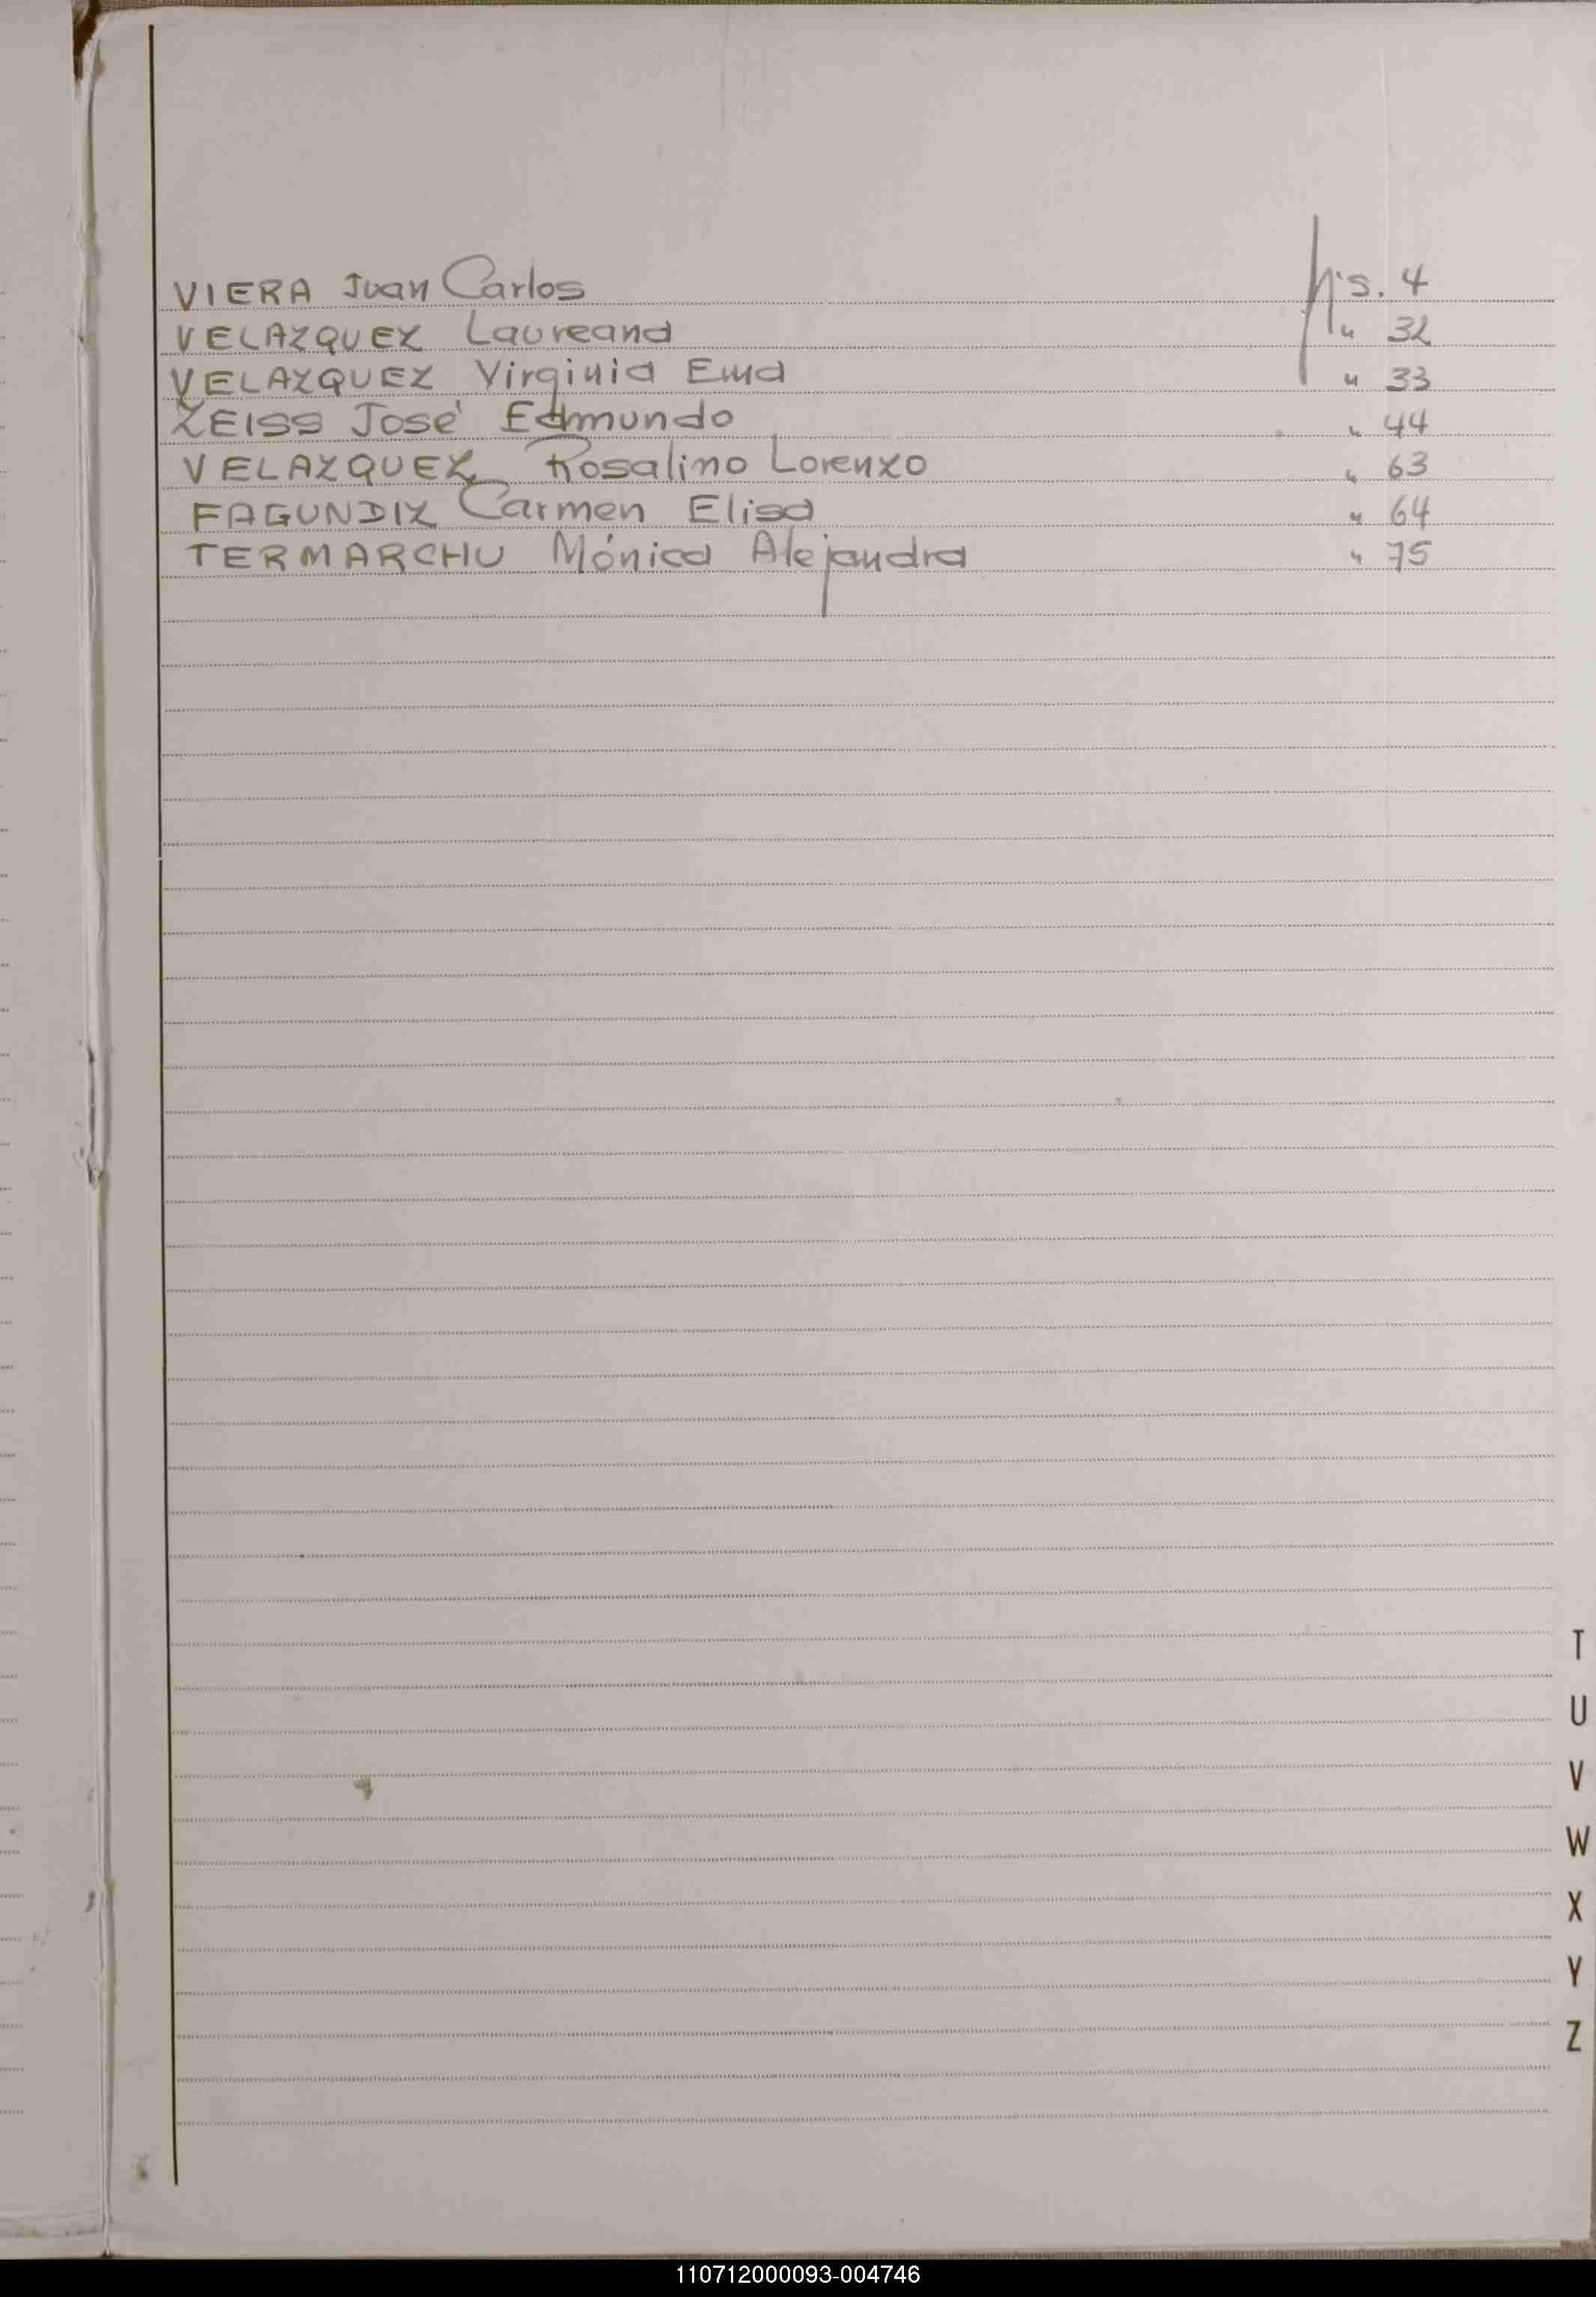 VIERA Juan Carlos fjs. 4
VELAZQUEZ Laureana " 32
VELAZQUEZ Virginia Ema " 33
ZEISS José Edmundo " 44
VELAZQUEZ Rosalino Lorenzo " 63
FAGUNDIZ Carmen Elisa " 64
TERMARCHU Mónica Alejandra " 75
T
U
V
W
X
Y
Z
110712000093-004746